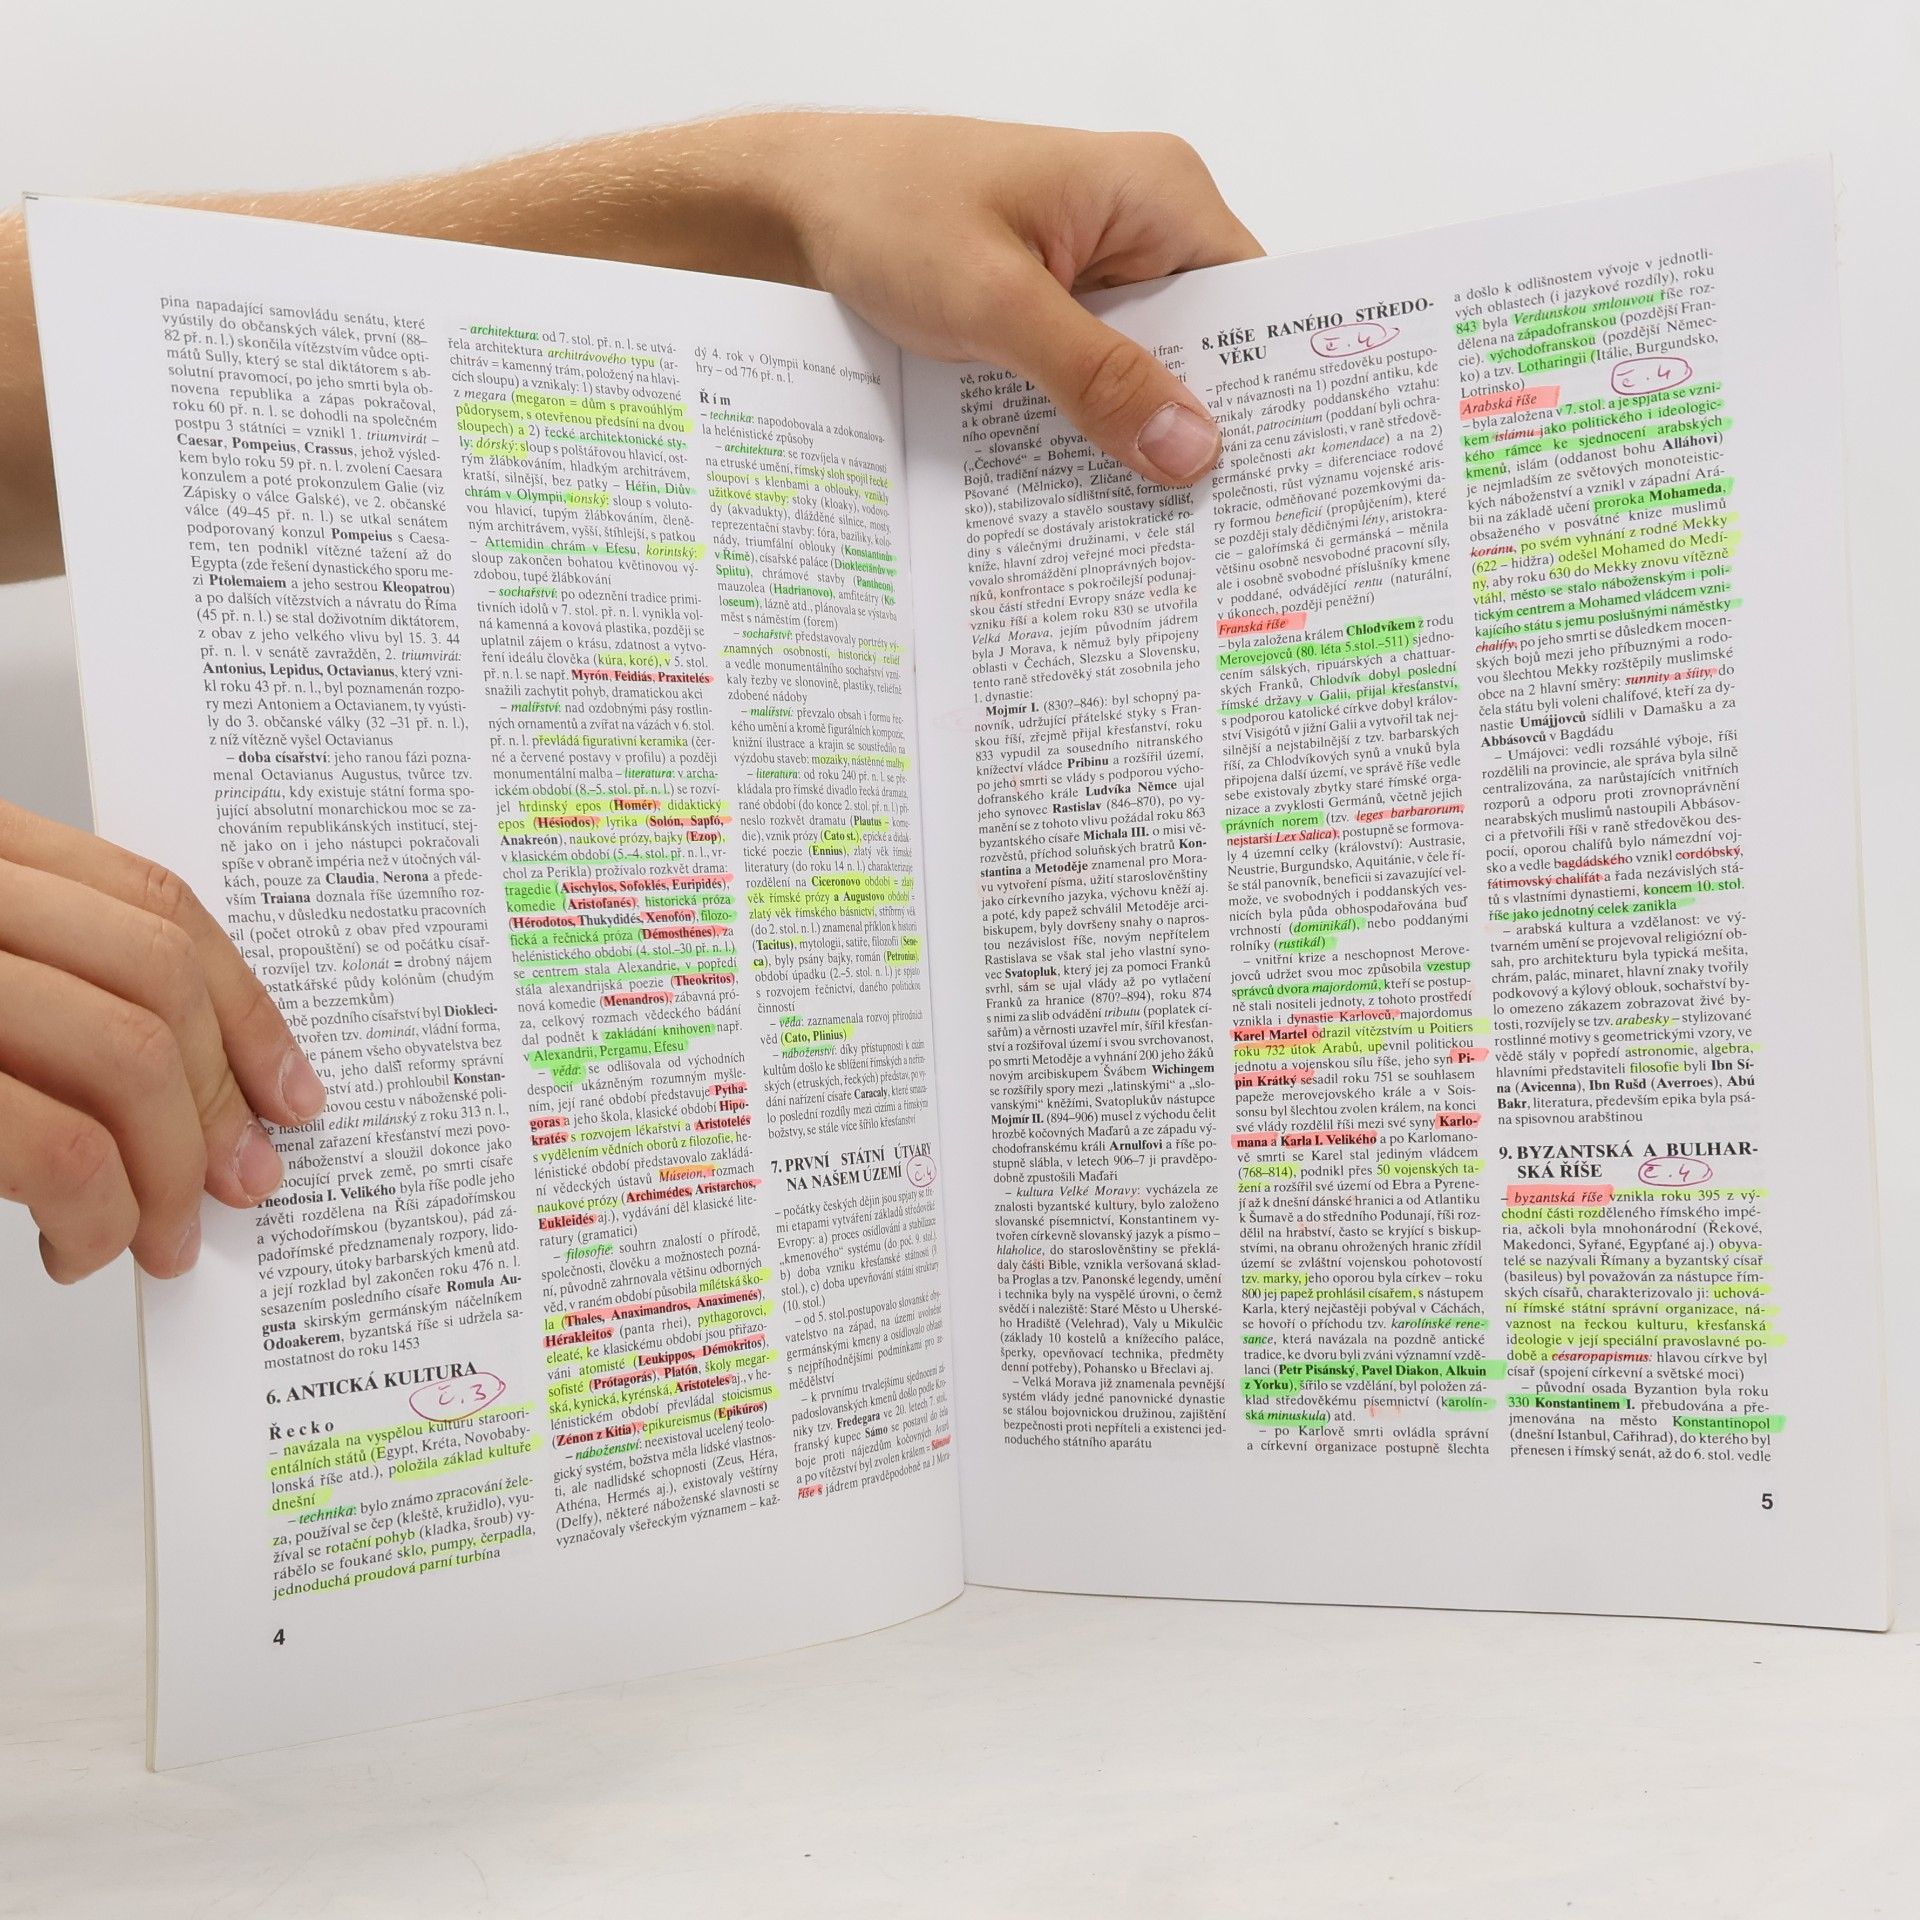 pina napadající samovládu senátu, které
vyústily do občanských válek, první (88–
82 př. n. l.) skončila vítězstvím vůdce opti-
mátů Sully, který se stal diktátorem s ab-
solutní pravomocí, po jeho smrti byla ob-
novena republika a zápas pokračoval,
roku 60 př. n. l. se dohodli na společném
postpu 3 státníci = vznikl 1. triumvirát –
Caesar, Pompeius, Crassus, jehož výsled-
kem bylo roku 59 př. n. l. zvolení Caesara
konzulem a poté prokonzulem Galie (viz
Zápisky o válce Galské), ve 2. občanské
válce (49–45 př. n. l.) se utkal senátem
podporovaný konzul Pompeius s Caesa-
rem, ten podnikl vítězné tažení až do
Egypta (zde řešení dynastického sporu me-
zi Ptolemaiem a jeho sestrou Kleopatrou)
a po dalších vítězstvích a návratu do Říma
(45 př. n. l.) se stal doživotním diktátorem,
z obav z jeho velkého vlivu byl 15. 3. 44
př. n. l. v senátě zavražděn, 2. triumvirát:
Antonius, Lepidus, Octavianus, který vzni-
kl roku 43 př. n. l., byl poznamenán rozpo-
ry mezi Antoniem a Octavianem, ty vyústi-
ly do 3. občanské války (32 –31 př. n. l.),
z níž vítězně vyšel Octavianus
– doba císařství: jeho ranou fázi pozna-
menal Octavianus Augustus, tvůrce tzv.
principátu, kdy existuje státní forma spo-
jující absolutní monarchickou moc se za-
chováním republikánských institucí, stej-
ně jako on i jeho nástupci pokračovali
spíše v obraně impéria než v útočných vál-
kách, pouze za Claudia, Nerona a přede-
vším Traiana doznala říše územního roz-
machu, v důsledku nedostatku pracovních
sil (počet otroků z obav před vzpourami
lesal, propouštění) se od počátku císař-
rozvíjel tzv. kolonát = drobný nájem
ostatkářské půdy kolónům (chudým
ům a bezzemkům)
obě pozdního císařství byl Diokleci-
tvořen tzv. dominát, vládní forma,
je pánem všeho obyvatelstva bez
vu, jeho další reformy správní
nství atd.) prohloubil Konstan-
novou cestu v náboženské poli-
e nastolil edikt milánský z roku 313 n. l.,
menal zařazení křesťanství mezi povo-
náboženství a sloužil dokonce jako
mocující prvek země, po smrti císaře
Theodosia I. Velikého byla říše podle jeho
závěti rozdělena na Říši západořímskou
a východořímskou (byzantskou), pád zá-
padořímské předznamenaly rozpory, lido-
vé vzpoury, útoky barbarských kmenů atd.
a její rozklad byl zakončen roku 476 n. l.
sesazením posledního císaře Romula Au-
gusta skirským germánským náčelníkem
Odoakerem, byzantská říše si udržela sa-
mostatnost do roku 1453
6. ANTICKÁ KULTURA
č. 3
Řecko
– navázala na vyspělou kulturu staroori-
entálních států (Egypt, Kréta, Novobaby-
lonská říše atd.), položila základ kultuře
dnešní
– technika: bylo známo zpracování žele-
za, používal se čep (kleště, kružidlo), vyu-
žíval se rotační pohyb (kladka, šroub) vy-
rábělo se foukané sklo, pumpy, čerpadla,
jednoduchá proudová parní turbína
4
– architektura: od 7. stol. př. n. l. se utvá-
řela architektura architrávového typu (ar-
chitráv = kamenný trám, položený na hlavi-
cích sloupu) a vznikaly: 1) stavby odvozené
z megara (megaron = dům s pravoúhlým
půdorysem, s otevřenou předsíní na dvou
sloupech) a 2) řecké architektonické sty-
ly: dórský: sloup s polštářovou hlavicí, ost-
rým žlábkováním, hladkým architrávem,
kratší, silnější, bez patky – Héřin, Diův
chrám v Olympii, ionský: sloup s voluto-
vou hlavicí, tupým žlábkováním, členě-
ným architrávem, vyšší, štíhlejší, s patkou
– Artemidin chrám v Efesu, korintský:
sloup zakončen bohatou květinovou vý-
zdobou, tupé žlábkování
– sochařství: po odeznění tradice primi-
tivních idolů v 7. stol. př. n. l. vynikla vol-
ná kamenná a kovová plastika, později se
uplatnil zájem o krásu, zdatnost a vytvo-
ření ideálu člověka (kúra, koré), v 5. stol.
př. n. l. se např. Myrón, Feidiás, Praxitelés
snažili zachytit pohyb, dramatickou akci
– malířství: nad ozdobnými pásy rostlin-
ných ornamentů a zvířat na vázách v 6. stol.
př. n. l. převládá figurativní keramika (čer-
né a červené postavy v profilu) a později
monumentální malba – literatura: v archa-
ickém období (8.–5. stol. př. n. l.) se rozví-
jel hrdinský epos (Homér), didaktický
epos (Hésiodos), lyrika (Solón, Sapfó,
Anakreón), naukové prózy, bajky (Ezop),
v klasickém období (5.–4. stol. př. n. l., vr-
chol za Perikla) prožívalo rozkvět drama:
tragedie (Aischylos, Sofoklés, Euripidés),
komedie (Aristofanés), historická próza
(Hérodotos, Thukydidés, Xenofón), filozo-
fická a řečnická próza (Démosthénes), za
helénistického období (4. stol.–30 př. n. l.)
se centrem stala Alexandrie, v popředí
stála alexandrijská poezie (Theokritos),
nová komedie (Menandros), zábavná pró-
za, celkový rozmach vědeckého bádání
dal podnět k zakládání knihoven např.
v Alexandrii, Pergamu, Efesu
– věda: se odlišovala od východních
despocií ukázněným rozumným myšle-
ním, její rané období představuje Pytha-
goras a jeho škola, klasické období Hipo-
kratés s rozvojem lékařství a Aristotelés
s vydělením vědních oborů z filozofie, he-
lénistické období představovalo zakládá-
ní vědeckých ústavů Múseion, rozmach
naukové prózy (Archimédes, Aristarchos,
Eukleidés aj.), vydávání děl klasické lite-
ratury (gramatici)
– filosofie: souhrn znalostí o přírodě,
společnosti, člověku a možnostech pozná-
ní, původně zahrnovala většinu odborných
věd, v raném období působila mílétská ško-
la (Thales, Anaximandros, Anaximenés),
Hérakleitos (panta rhei), pythagorovci,
eleaté, ke klasickému období jsou přiřazo-
váni atomisté (Leukippos, Démokritos),
sofisté (Prótagorás), Platón, školy megar-
ská, kynická, kyrénská, Aristoteles aj., v he-
lénistickém období převládal stoicismus
(Zénon z Kitia), epikureismus (Epikúros)
– náboženství: neexistoval ucelený teolo-
gický systém, božstva měla lidské vlastnos-
ti, ale nadlidské schopnosti (Zeus, Héra,
Athéna, Hermés aj.), existovaly veštírny
(Delfy), některé náboženské slavnosti se
vyznačovaly všeřeckým významem – kaž-
dý 4. rok v Olympii konané olympijské
hry – od 776 př. n. l.
Řím
– technika: napodobovala a zdokonalova-
la helénistické způsoby
– architektura: se rozvíjela v návaznosti
na etruské umění, římský sloh spojil řecké
sloupoví s klenbami a oblouky, vznikly
užitkové stavby: stoky (kloaky), vodovo-
dy (akvadukty), dlážděné silnice, mosty,
reprezentační stavby: fóra, baziliky, kolo-
nády, triumfální oblouky (Konstantinův
v Římě), císařské paláce (Diokleciánův ve
Splitu), chrámové stavby (Pantheon),
mauzolea (Hadrianovo), amfiteátry (Ko-
loseum), lázně atd., plánovala se výstavba
měst s náměstím (forem)
– sochařství: představovaly portréty vý-
znamných osobností, historický reliéf
a vedle monumentálního sochařství vzni-
kaly řezby ve slonovině, plastiky, reliéfně
zdobené nádoby
– malířství: převzalo obsah i formu řec-
kého umění a kromě figurálních kompozic,
knižní ilustrace a krajin se soustředilo na
výzdobu staveb: mozaiky, nástěnné malby
– literatura: od roku 240 př. n. l. se pře-
kládala pro římské divadlo řecká dramata,
rané období (do konce 2. stol. př. n. l.) při-
neslo rozkvět dramatu (Plautus – kome-
die), vznik prózy (Cato st.), epické a didak-
tické poezie (Ennius), zlatý věk římské
literatury (do roku 14 n. l.) charakterizuje
rozdělení na Ciceronovo období = zlatý
věk římské prózy a Augustovo období =
zlatý věk římského básnictví, stříbrný věk
(do 2. stol. n. l.) znamenal příklon k historii
(Tacitus), mytologii, satiře, filozofii (Sene-
ca), byly psány bajky, román (Petronius),
období úpadku (2.–5. stol. n. l.) je spjato
s rozvojem řečnictví, daného politickou
činností
– věda: zaznamenala rozvoj přírodních
věd (Cato, Plinius)
– náboženství: díky přístupnosti k cizím
kultům došlo ke sblížení římských a neřím-
ských (etruských, řeckých) představ, po vy-
dání nařízení císaře Caracaly, které smaza-
lo poslední rozdíly mezi cizími a římským
božstvy, se stále více šířilo křesťanství
7. PRVNÍ STÁTNÍ ÚTVARY
NA NAŠEM ÚZEMÍ
č. 4
– počátky českých dějin jsou spjaty se tře-
mi etapami vytváření základů středověké
Evropy: a) proces osídlování a stabilizace
„kmenového“ systému (do poč. 9. stol.),
b) doba vzniku křesťanské státnosti (9.
stol.), c) doba upevňování státní struktury
(10. stol.)
– od 5. stol. postupovalo slovanské oby-
vatelstvo na západ, na území uvolněné
germánskými kmeny a osidlovalo oblasti
s nejpříhodnějšími podmínkami pro ze-
mědělství
– k prvnímu trvalejšímu sjednocení zá-
padoslovanských kmenů došlo podle kro-
niky tzv. Fredegara ve 20. letech 7. stol.,
franský kupec Sámo se postavil do čela
boje proti nájezdům kočovných Avarů
a po vítězství byl zvolen králem = Sámova
říše s jádrem pravděpodobně na J Mora-
vě, roku 63
ského krále D
skými družinam
a k obraně území
ního opevnění
– slovanské obyva
(„Čechové“ = Bohemi,
Bojů, tradiční název = Lučan
Pšované (Mělnicko), Zličané
sko)), stabilizovalo sídlištní sítě, formova
kmenové svazy a stavělo soustavy sídlišť,
do popředí se dostávaly aristokratické ro-
diny s válečnými družinami, v čele stál
kníže, hlavní zdroj veřejné moci předsta-
vovalo shromáždění plnoprávných bojov-
níků, konfrontace s pokročilejší podunaj-
skou částí střední Evropy snáze vedla ke
vzniku říší a kolem roku 830 se utvořila
Velká Morava, jejím původním jádrem
byla J Morava, k němuž byly připojeny
oblasti v Čechách, Slezsku a Slovensku,
tento raně středověký stát zosobnila jeho
1. dynastie:
Mojmír I. (830?–846): byl schopný pa-
novník, udržující přátelské styky s Fran-
skou říší, zřejmě přijal křesťanství, roku
833 vypudil za sousedního nitranského
knížectví vládce Pribinu a rozšířil území,
po jeho smrti se vlády s podporou výcho-
dofranského krále Ludvíka Němce ujal
jeho synovec Rastislav (846–870), po vy-
manění se z tohoto vlivu požádal roku 863
byzantského císaře Michala III. o misi vě-
rozvěstů, příchod soluňských bratrů Kon-
stantina a Metoděje znamenal pro Mora-
vu vytvoření písma, užití staroslověnštiny
jako církevního jazyka, výchovu kněží aj.
a poté, kdy papež schválil Metoděje arci-
biskupem, byly dovršeny snahy o napros-
tou nezávislost říše, novým nepřítelem
Rastislava se však stal jeho vlastní syno-
vec Svatopluk, který jej za pomoci Franků
svrhl, sám se ujal vlády až po vytlačení
Franků za hranice (870?–894), roku 874
s nimi za slib odvádění tributu (poplatek cí-
sařům) a věrnosti uzavřel mír, šířil křesťan-
ství a rozšiřoval území i svou svrchovanost,
po smrti Metoděje a vyhnání 200 jeho žáků
novým arcibiskupem Švábem Wichingem
se rozšířily spory mezi „latinskými“ a „slo-
vanskými“ kněžími, Svatoplukův nástupce
Mojmír II. (894–906) musel z východu čelit
hrozbě kočovných Maďarů a ze západu vý-
chodofranskému králi Arnulfovi a říše po-
stupně slábla, v letech 906–7 ji pravděpo-
dobně zpustošili Maďaři
– kultura Velké Moravy: vycházela ze
znalosti byzantské kultury, bylo založeno
slovanské písemnictví, Konstantinem vy-
tvořen církevně slovanský jazyk a písmo –
hlaholice, do staroslověnštiny se překlá-
daly části Bible, vznikla veršovaná sklad-
ba Proglas a tzv. Panonské legendy, umění
i technika byly na vyspělé úrovni, o čemž
svědčí i naleziště: Staré Město u Uherské-
ho Hradiště (Velehrad), Valy u Mikulčic
(základy 10 kostelů a knížecího paláce,
šperky, opevňovací technika, předměty
denní potřeby), Pohansko u Břeclavi aj.
– Velká Morava již znamenala pevnější
systém vlády jedné panovnické dynastie
se stálou bojovnickou družinou, zajištění
bezpečnosti proti nepříteli a existenci jed-
noduchého státního aparátu
8. ŘÍŠE RANÉHO STŘEDO-
VĚKU
č. 4
– přechod k ranému středověku postupo-
val v návaznosti na 1) pozdní antiku, kde
vznikaly zárodky poddanského vztahu:
kolonát, patrocinium (poddaní byli ochra-
ňováni za cenu závislosti, v raně středově-
ké společnosti akt komendace) a na 2)
germánské prvky = diferenciace rodové
společnosti, růst významu vojenské aris-
tokracie, odměňované pozemkovými da-
ry formou beneficií (propůjčením), které
se později staly dědičnými lény, aristokra-
cie – galořímská či germánská – měnila
většinu osobně nesvobodné pracovní síly,
ale i osobně svobodné příslušníky kmene
v poddané, odvádějící rentu (naturální,
v úkonech, později peněžní)
Franská říše
– byla založena králem Chlodvíkem z rodu
Merovejovců (80. léta 5.stol.–511) sjedno-
cením sálských, ripuárských a chattuar-
ských Franků, Chlodvík dobyl poslední
římské državy v Galii, přijal křesťanství,
s podporou katolické církve dobyl králov-
ství Visigótů v jižní Galii a vytvořil tak nej-
silnější a nejstabilnější z tzv. barbarských
říší, za Chlodvíkových synů a vnuků byla
připojena další území, ve správě říše vedle
sebe existovaly zbytky staré římské orga-
nizace a zvyklosti Germánů, včetně jejich
právních norem (tzv. leges barbarorum,
nejstarší Lex Salica), postupně se formova-
ly 4 územní celky (království): Austrasie,
Neustrie, Burgundsko, Aquitánie, v čele ří-
še stál panovník, beneficii si zavazující vel-
može, ve svobodných i poddanských ves-
nicích byla půda obhospodařována buď
vrchností (dominikál), nebo poddanými
rolníky (rustikál)
– vnitřní krize a neschopnost Merove-
jovců udržet svou moc způsobila vzestup
správců dvora majordomů, kteří se postup-
ně stali nositeli jednoty, z tohoto prostředí
vznikla i dynastie Karlovců, majordomus
Karel Martel odrazil vítězstvím u Poitiers
roku 732 útok Arabů, upevnil politickou
jednotu a vojenskou sílu říše, jeho syn Pi-
pin Krátký sesadil roku 751 se souhlasem
papeže merovejovského krále a v Sois-
sonsu byl šlechtou zvolen králem, na konci
své vlády rozdělil říši mezi své syny Karlo-
mana a Karla I. Velikého a po Karlomano-
vě smrti se Karel stal jediným vládcem
(768–814), podnikl přes 50 vojenských ta-
žení a rozšířil své území od Ebra a Pyrene-
jí až k dnešní dánské hranici a od Atlantiku
k Šumavě a do středního Podunají, říši roz-
dělil na hrabství, často se kryjící s biskup-
stvími, na obranu ohrožených hranic zřídil
území se zvláštní vojenskou pohotovostí
tzv. marky, jeho oporou byla církev – roku
800 jej papež prohlásil císařem, s nástupem
Karla, který nejčastěji pobýval v Cáchách,
se hovoří o příchodu tzv. karolínské rene-
sance, která navázala na pozdně antické
tradice, ke dvoru byli zváni významní vzdě-
lanci (Petr Pisánský, Pavel Diakon, Alkuin
z Yorku), šířilo se vzdělání, byl položen zá-
klad středověkému písemnictví (karolín-
ská minuskula) atd.
– po Karlově smrti ovládla správní
a církevní organizace postupně šlechta
a došlo k odlišnostem vývoje v jednotli-
vých oblastech (i jazykové rozdíly), roku
843 byla Verdunskou smlouvou říše roz-
dělena na západofranskou (pozdější Fran-
cie), východofranskou (pozdější Němec-
ko) a tzv. Lotharingii (Itálie, Burgundsko,
Lotrinsko)
č. 4
Arabská říše
– byla založena v 7. stol. a je spjata se vzni-
kem islámu jako politického i ideologic-
kého rámce ke sjednocení arabských
kmenů, islám (oddanost bohu Alláhovi)
je nejmladším ze světových monoteistic-
kých náboženství a vznikl v západní Ará-
bii na základě učení proroka Mohameda,
obsaženého v posvátné knize muslimů
koránu, po svém vyhnání z rodné Mekky
(622 – hidžra) odešel Mohamed do Medí-
ny, aby roku 630 do Mekky znovu vítězně
vtáhl, město se stalo náboženským i poli-
tickým centrem a Mohamed vládcem vzni-
kajícího státu s jemu poslušnými náměstky
chalífy, po jeho smrti se důsledkem mocen-
ských bojů mezi jeho příbuznými a rodo-
vou šlechtou Mekky rozštěpily muslimské
obce na 2 hlavní směry: sunnity a šíity, do
čela státu byli voleni chalífové, kteří za dy-
nastie Umájjovců sídlili v Damašku a za
Abbásovců v Bagdádu
– Umájovci: vedli rozsáhlé výboje, říši
rozdělili na provincie, ale správa byla silně
centralizována, za narůstajících vnitřních
rozporů a odporu proti zrovnoprávnění
nearabských muslimů nastoupili Abbásov-
ci a přetvořili říši v raně středověkou des-
pocii, oporou chalífů bylo námezdní voj-
sko a vedle bagdádského vznikl cordóbský,
fátimovský chalífát a řada nezávislých stá-
tů s vlastními dynastiemi, koncem 10. stol.
říše jako jednotný celek zanikla
– arabská kultura a vzdělanost: ve vý-
tvarném umění se projevoval religiózní ob-
sah, pro architekturu byla typická mešita,
chrám, palác, minaret, hlavní znaky tvořily
podkovový a kýlový oblouk, sochařství by-
lo omezeno zákazem zobrazovat živé by-
tosti, rozvíjely se tzv. arabesky – stylizované
rostlinné motivy s geometrickými vzory, ve
vědě stály v popředí astronomie, algebra,
hlavními představiteli filosofie byli Ibn Sí-
na (Avicenna), Ibn Rušd (Averroes), Abú
Bakr, literatura, především epika byla psá-
na spisovnou arabštinou
9. BYZANTSKÁ A BULHAR-
SKÁ ŘÍŠE
č. 4
– byzantská říše vznikla roku 395 z vý-
chodní části rozděleného římského impé-
ria, ačkoli byla mnohonárodní (Řekové,
Makedonci, Syřané, Egypťané aj.) obyva-
telé se nazývali Římany a byzantský císař
(basileus) byl považován za nástupce řím-
ských císařů, charakterizovalo ji: uchová-
ní římské státní správní organizace, ná-
vaznost na řeckou kulturu, křesťanská
ideologie v její speciální pravoslavné po-
době a césaropapismus: hlavou církve byl
císař (spojení církevní a světské moci)
– původní osada Byzantion byla roku
330 Konstantinem I. přebudována a pře-
jmenována na město Konstantinopol
(dnešní Istanbul, Cařihrad), do kterého byl
přenesen i římský senát, až do 6. stol. vedle
5